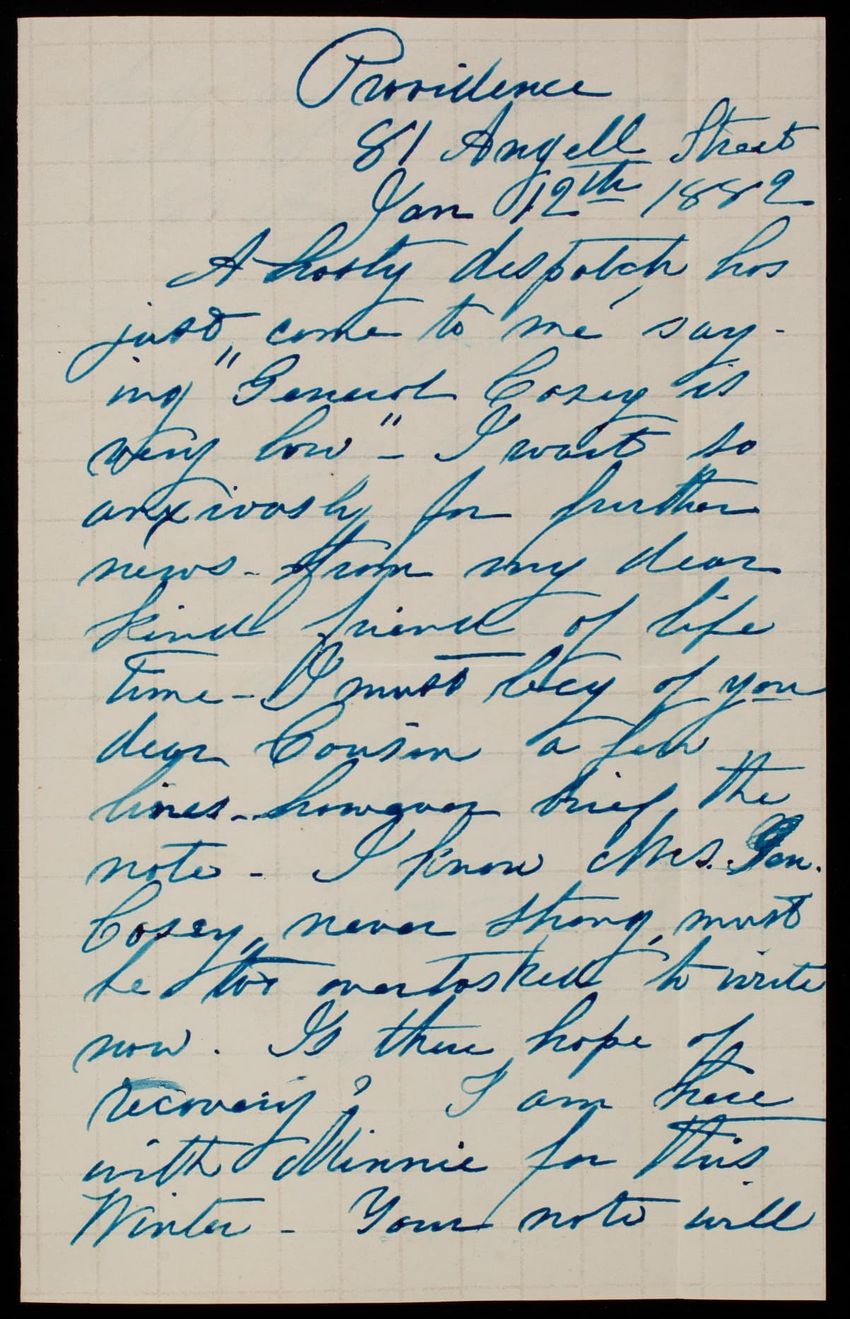 Providence
81 Angell Street
Jan 12th 1882
A hasty despatch has
just come to me say-
ing "General Casey is
very low" - I wait so
anxiously for further
news - from my dear
kind friend of life
time - I must beg of you
dear Cousin a few
lines - however brief the
note - I know Mrs. Gen.
Casey, never strong, must
be too overtasked to write
now. Is there hope of
recovery? I am here
with Minnie for this
Winter - Your note will